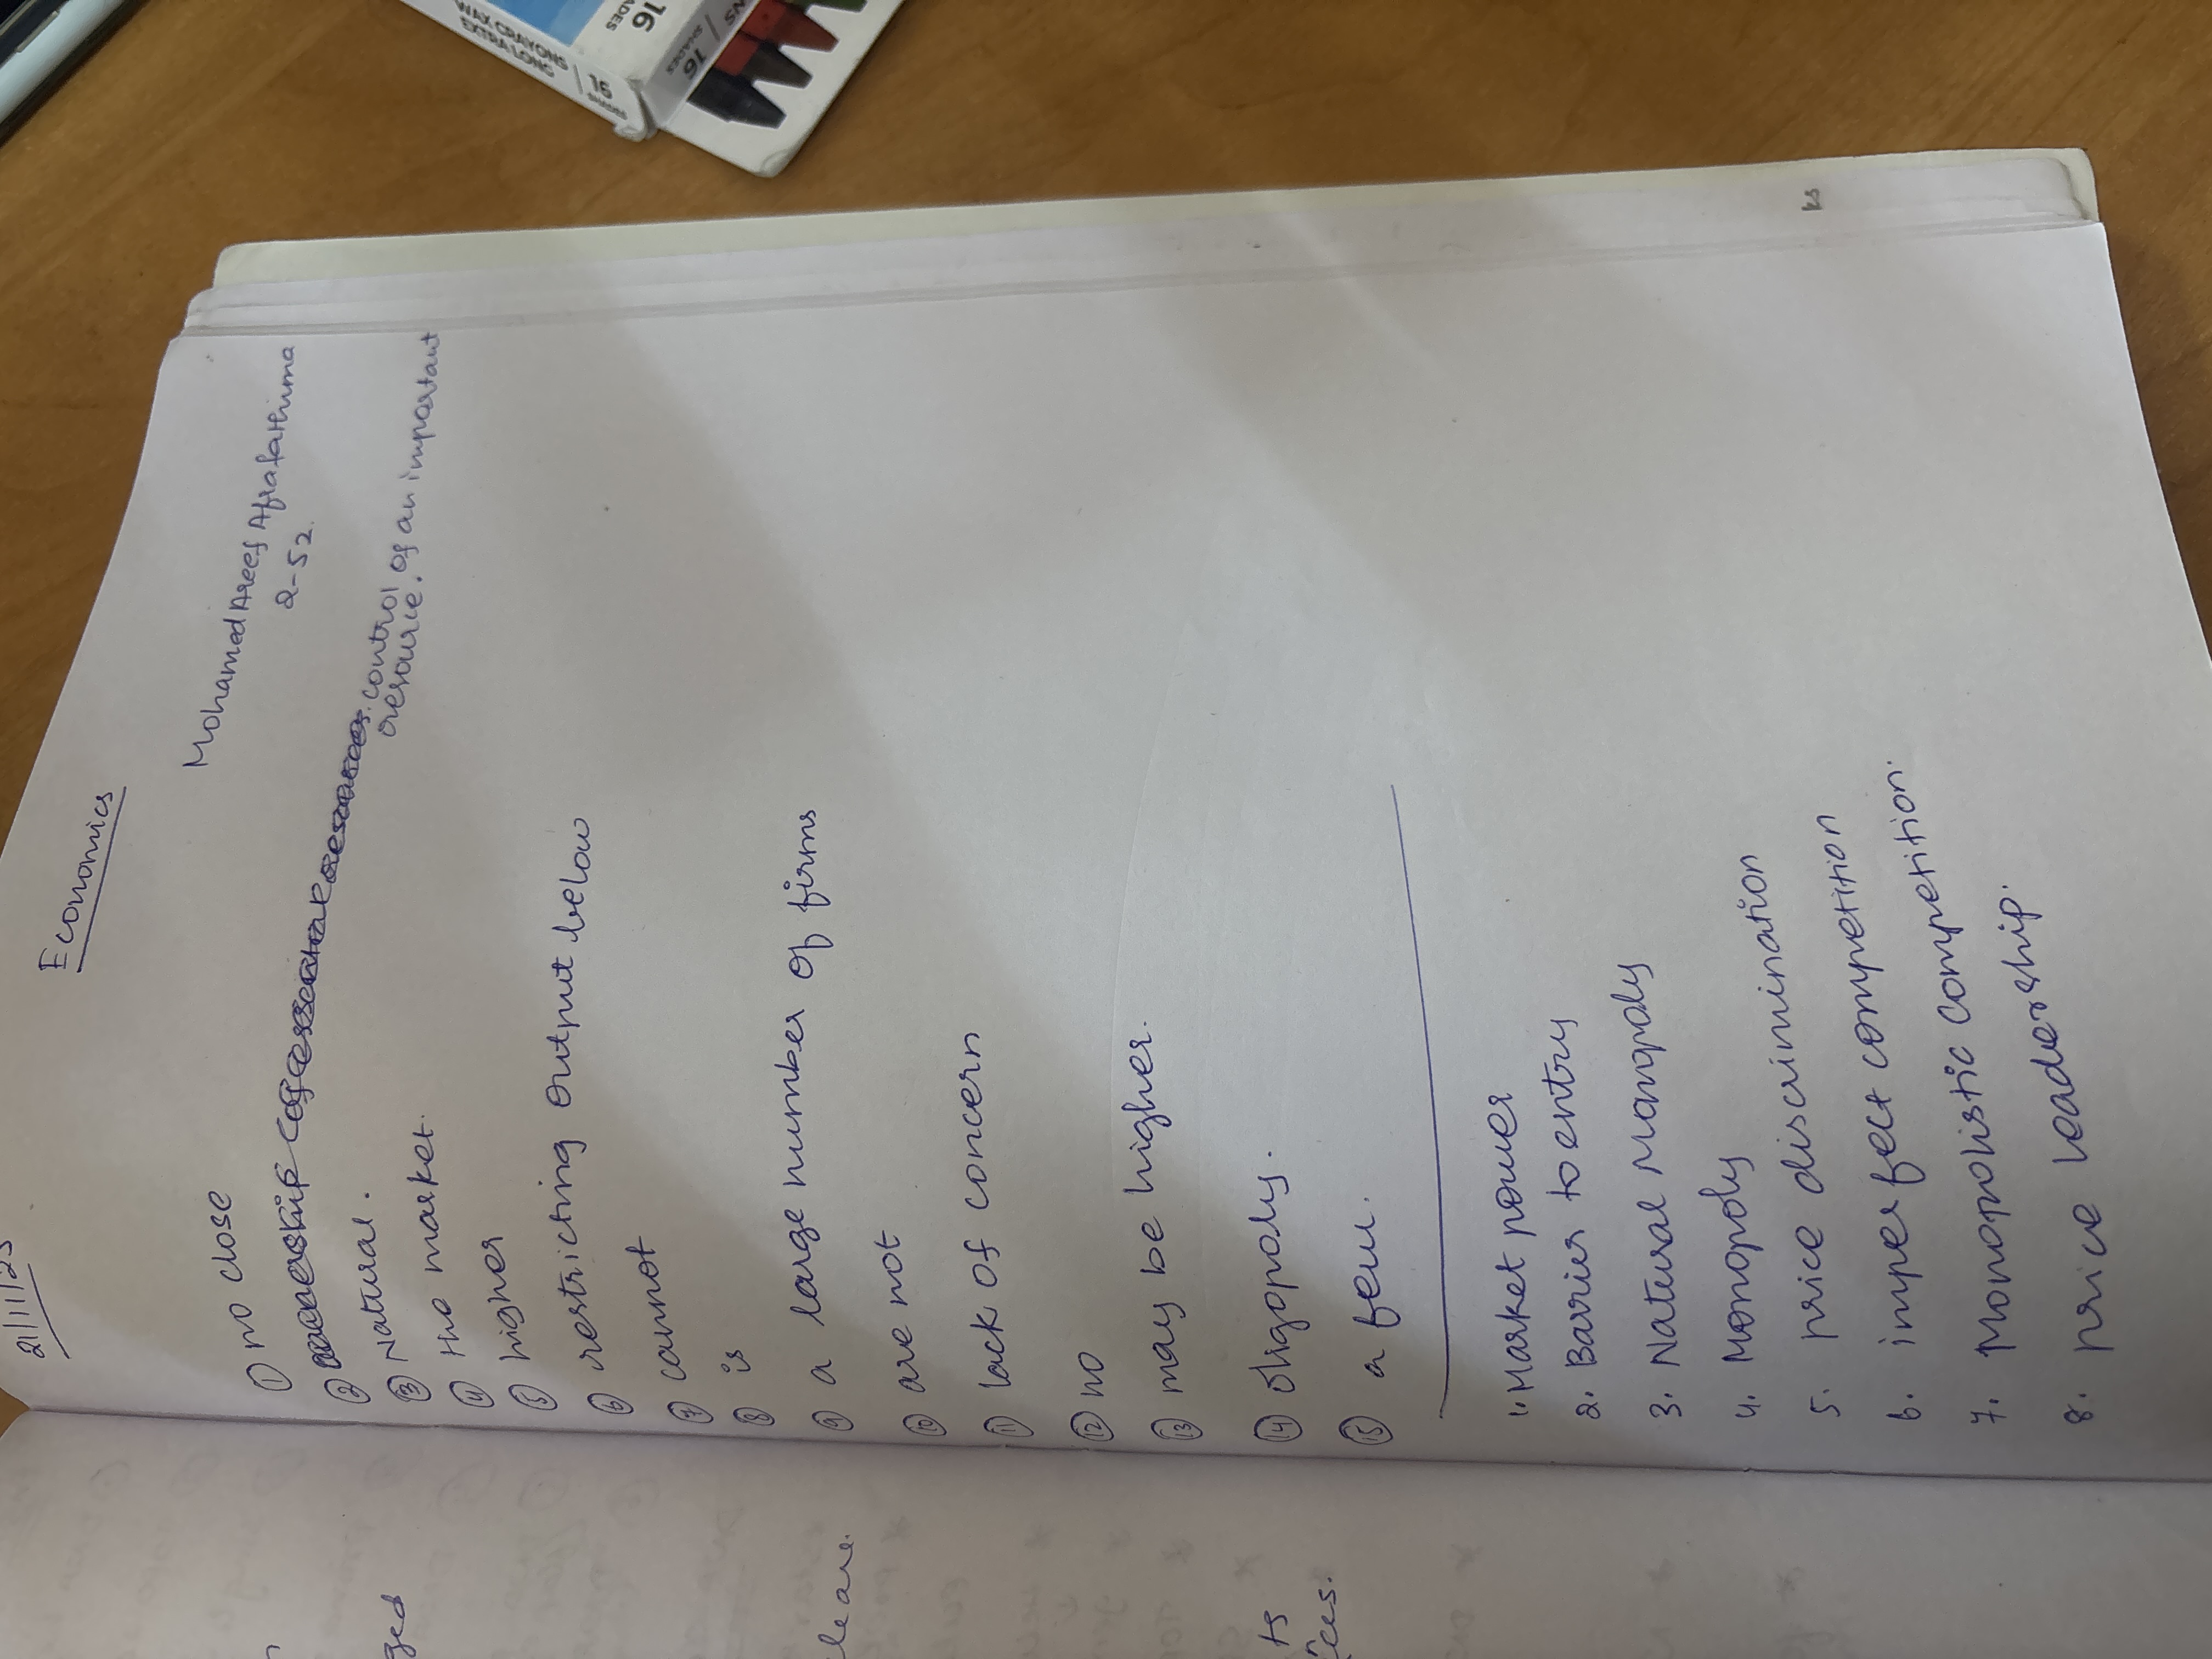 21/11/25
Economics
Mohamed Areef Afrafathima
2-52.
① no close
② control of an important
resource.
③ Natural.
④ the market.
⑤ higher
⑥ restricting output below
⑦ cannot
⑧ is
⑨ a large number of firms
⑩ are not
⑪ lack of concern
⑫ no
⑬ may be higher.
⑭ oligopoly.
⑮ a few.
1. Market power
2. Barrier to entry
3. Natural Monopoly
4. Monopoly
5. price discrimination
6. imperfect competition
7. Monopolistic competition.
8. price leadership.
WAX CRAYONS
EXTRA LONG
16
SHADES
16
SHADES